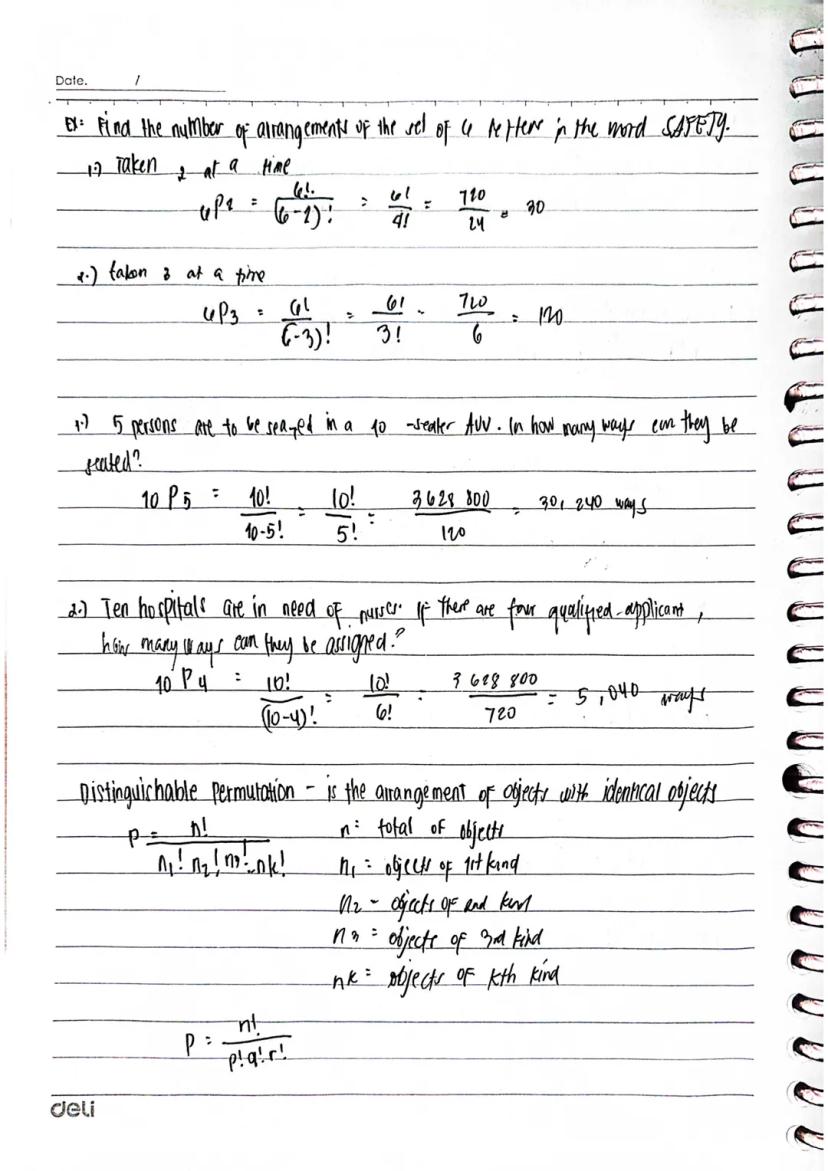 Date. /
Ex: Find the number of arrangements of the set of 6 letters in the word SAFETY.
1.) Taken 2 at a time
6P2 = 6!/(6-2)! = 6!/4! = 720/24 = 30
2.) taken 3 at a time
6P3 = 6!/(6-3)! = 6!/3! = 720/6 = 120
1.) 5 persons are to be seated in a 10 -seater AUV. In how many ways can they be
seated?
10 P5 = 10!/10-5! = 10!/5! = 3 628 800/120 = 30, 240 ways
2.) Ten hospitals are in need of nurses. If there are four qualified-applicant,
how many ways can they be assigned?
10 P4 = 10!/(10-4)! = 10!/6! = 3 628 800/720 = 5,040 ways
Distinguishable Permutation - is the arrangement of objects with identical objects
P = n!/n1! n2! n3!...nk! n = total of objects
n1 = objects of 1st kind
n2 - objects of 2nd kind
n3 = objects of 3rd kind
nk = objects of kth kind
P = n!/p!q!r!
deli